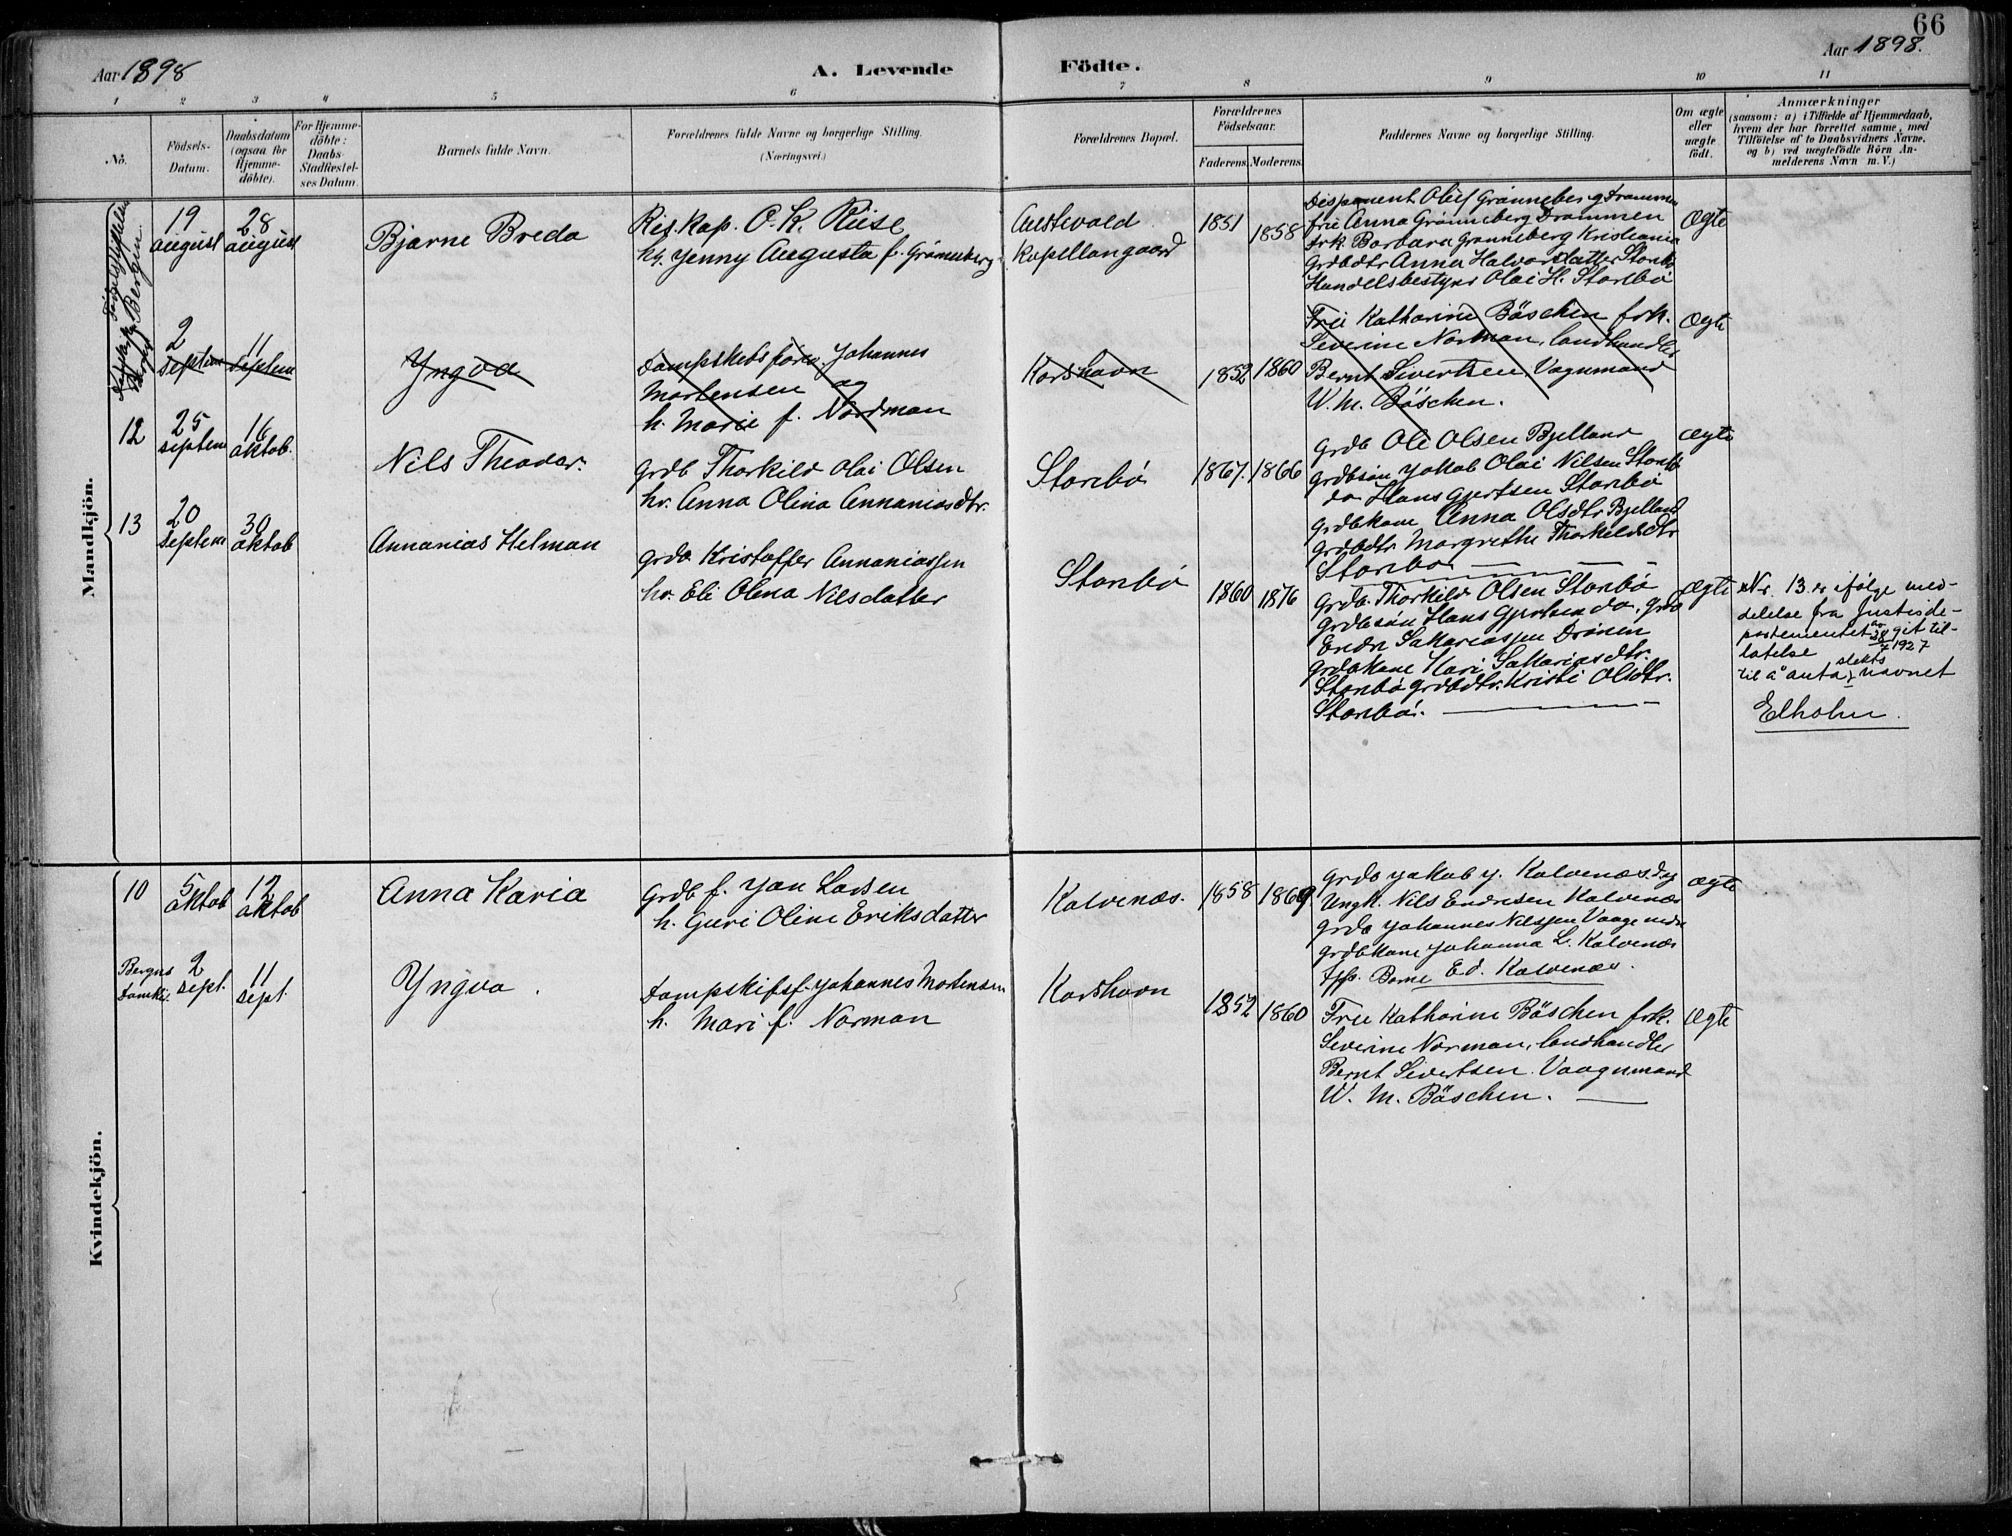 66
Aar 1898
A. Levende
Födte.
Aar 1898.
1
2
3
4
5
6
7
8
9
10
11
No.
Födsels-
Datum.
Daabsdatum
(ogsaa for
Hjemme-
döbte).
For Hjemme-
döbte:
Daabs-
Stadfæstel-
ses Datum.
Barnets fulde Navn.
Forældrenes fulde Navne og borgerlige Stilling.
(Næringsvei.)
Forældrenes Bopæl.
Forældrenes
Födselsaar.
Faderens.
Moderens.
Faddernes Navne og borgerlige Stilling.
Om ægte
eller
uægte
födt.
Anmærkninger
(saasom: a) i Tilfælde af Hjemmedaab,
hvem der har forrettet samme, med
Tilföielse af to Daabsvidners Navne,
og b) ved uægtefödte Börn An-
melderens Navn m. V.)
Mandkjön.
Bergen.
19
august
28
august
Bjarne Breda
Res. Kap. O. K. Riise
h. Jenny Augusta f. Grønneberg
Austevold
Kapellangaard
1851
1858
Disponent Oluf Grønneberg Drammen
frue Anna Grønneberg Drammen
frk. Barbara Grønneberg Kristiania
Grdbdtr Anna Halvorsdatter Storebø
Handelsbestyrer Olai H. Storebø
Ægte
2
Septem
11
Septem
Yngva
Dampskibsfører Johannes
Mortensen og
h. Marie f. Nordman
Korshavn
1852
1860
Frue Katharine Böschen frk.
Severine Norman, landhandler
Bernt Sivertsen, Vognmand
W. M. Böschen.
Ægte
12
25
septem
16
oktob.
Nils Theodor.
Grdb Thorkild Olai Olsen
h. Anna Olina Annaniasdtr.
Storebø
1867.
1866
Grdb Ole Olsen Bjelland
Grdbsøn Jakob Olai Nilsen Storebø
do Hans Gjertsen Storebø
Grdbkone Anna Olsdtr Bjelland
Grdbdtr Margrethe Thorkildsdtr
Storebø
Ægte
13
20
Septem
30
oktob
Annanias Helman
Grdb Kristoffer Annaniassen
h. Eli Olena Nilsdatter
Storebø
1860
1876
Grdb. Thorkild Olsen Storebø
Grdbsøn Hans Gjertsen do, Grdb
Endre Sakariassen Drönen
Grdbkone Kari Sakariasdtr.
Storebø Grdbdtr. Kristi Olsdtr.
Storebø.
Ægte
Nr. 13 er ifølge med-
delelse fra Justisde-
partementet av 28/4 1927 git til-
latelse
til å anta slektsnavnet
Elholm.
Kvindekjön.
10
5
oktob
12
oktob
Anna Karia
Grdb f. Jan Larsen
h. Guri Oline Eriksdatter
Kalvenæs.
1858
1869
Grdb Jakob J. Kalvenæs
Ungk. Nils Endresen Kalvenæs
Grdb Johannes Nilssen Vaage
Grdbkone Johanna L. Kalvenæs
Kalvenæs.
Ægte
Bergens
Domk.
2
sept.
11
sept.
Yngva.
Dampskibsf. Johannes Mortensen
h. Mari f. Norman
Korshavn
1852
1860
Frue Katharine Böschen frk.
Severine Norman, landhandler
Bernt Sivertsen. Vognmand
W. M. Böschen.
Ægte